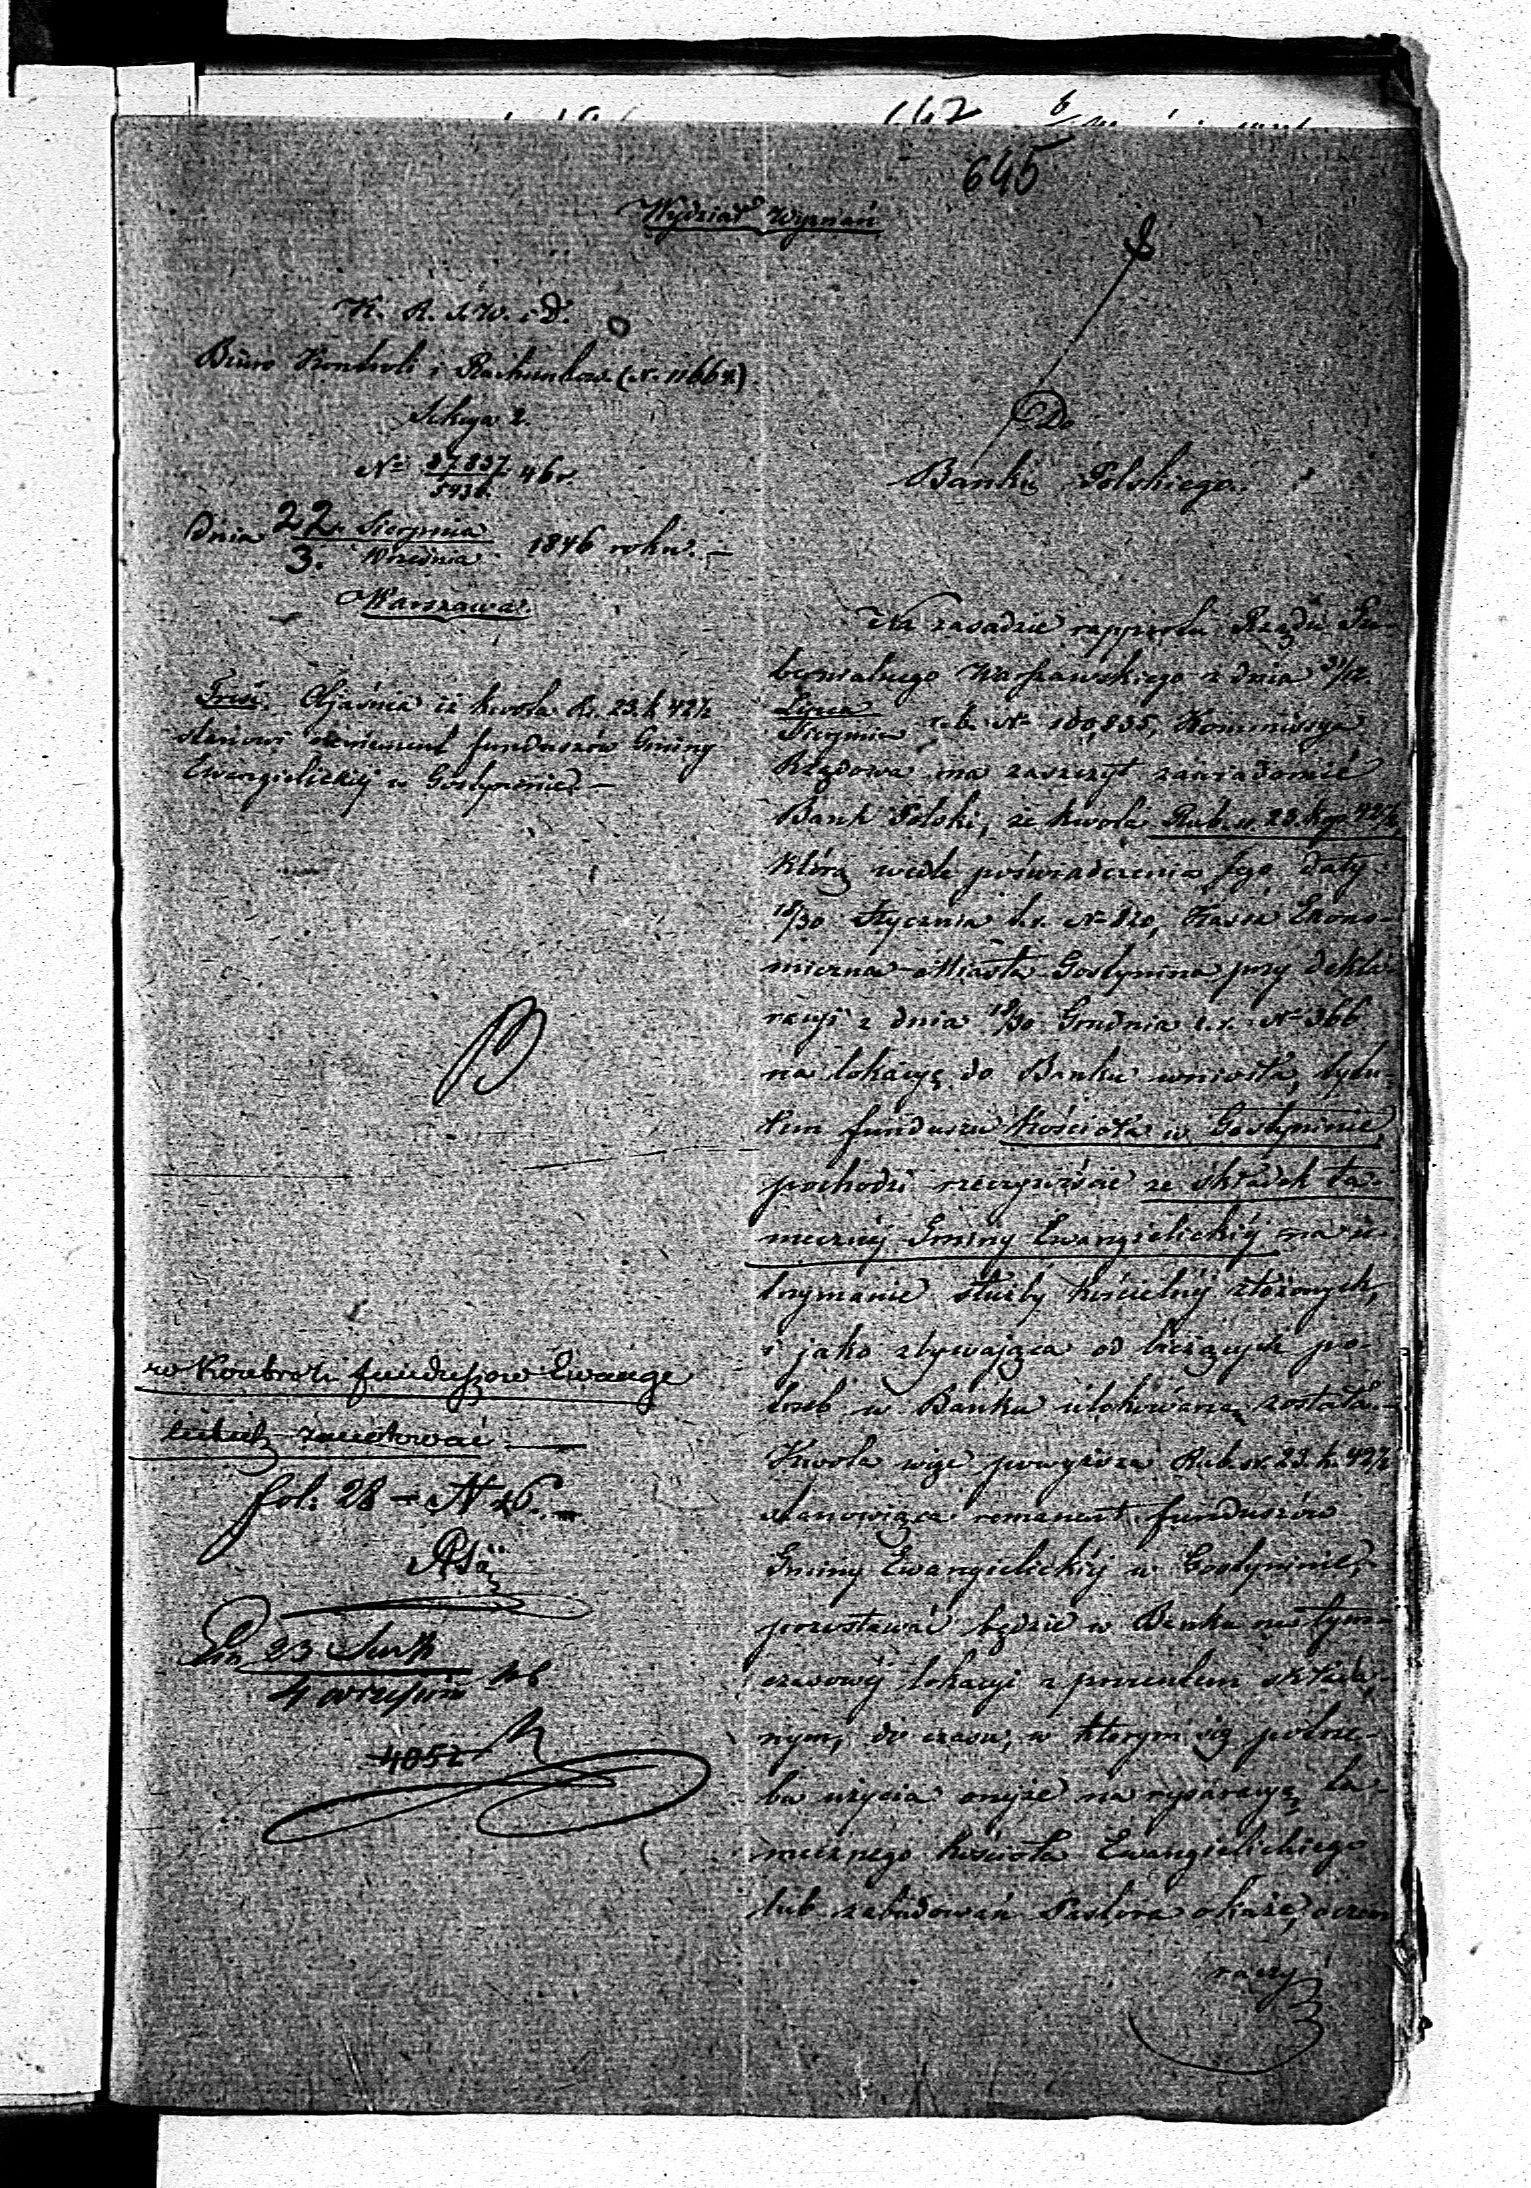 645
Wydział Wyznań
K. R. S. W. i D.
Biuro Kontroli i Rachunków (N. 11664)
Sekcya 2.
No 37837 46 r.
dnia 22 Sierpnia
3. Września 1846 roku. —
Warszawa.
Treść. Objaśnia iż kwota Rs. 23. k. 42½
stanowi remanent funduszów Gminy
Ewangielickiéj w Gostyninie. —
w Kontroli funduszow Ewange
lickich zanotować —
fol: 28 — N 26. —
23 Sierp
4 wrzesnia 46
4052
Do
Banku Polskiego.
Na zasadzie rapportu Rządu Gu-
bernialnego Warszawskiego z dnia 31/12.
Lipca
Sierpnia r. b. No 100,835, Kommissya
Rządowa ma zaszczyt zawiadomić
Bank Polski, że kwota Rub. sr. 23. kop. 42½,
którą wedle poświadczenia Jego daty
18/30 Stycznia b. r. No 820, Kassa Ekono-
miczna Miasta Gostynina przy dekla-
racyi z dnia 18/30 Grudnia z. r. No 366
na lokacyę do Banku wniosła, tytu-
łem funduszu Kościoła w Gostyninie,
pochodzi rzeczywiście ze składek ta-
meczniéj Gminy Ewangielickiéj na u-
trzymanie służby kościelnéj złożonych,
i jako zbywająca od bieżących po-
trzeb w Banku ulokowaną została. —
Kwota więc powyższa Rub. sr. 23. k. 42½
stanowiąca remanent funduszów
Gminy Ewangielickiéj w Gostyninie,
pozostawać będzie w Banku na tym-
czasowéj lokacyi z procentem skład-
nym, do czasu, w którym się potrze-
ba użycia onéjże na reparacyę ta-
mecznego Kościoła Ewangielickiego
lub zabudowań Pastora okaże, o czem
raczy